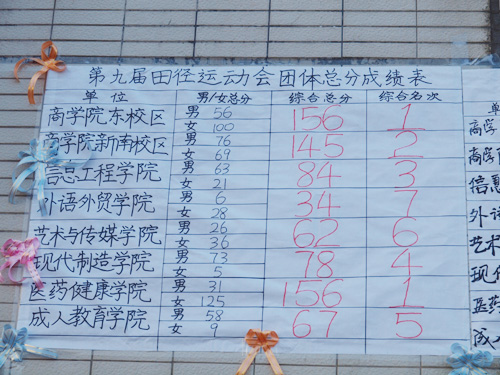 第九届田径运动会团体总分成绩表
单位 男/女总分 综合总分 综合名次
商学院东校区 男 56 女 100 156 1
商学院新南校区 男 76 女 69 145 2
信息工程学院 男 63 女 21 84 3
外语外贸学院 男 6 女 28 34 7
艺术与传媒学院 男 26 女 36 62 6
现代制造学院 男 73 女 5 78 4
医药健康学院 男 31 女 125 156 1
成人教育学院 男 58 女 9 67 5
单
商学
商学
信息
外语
艺术
现代
医药
成人